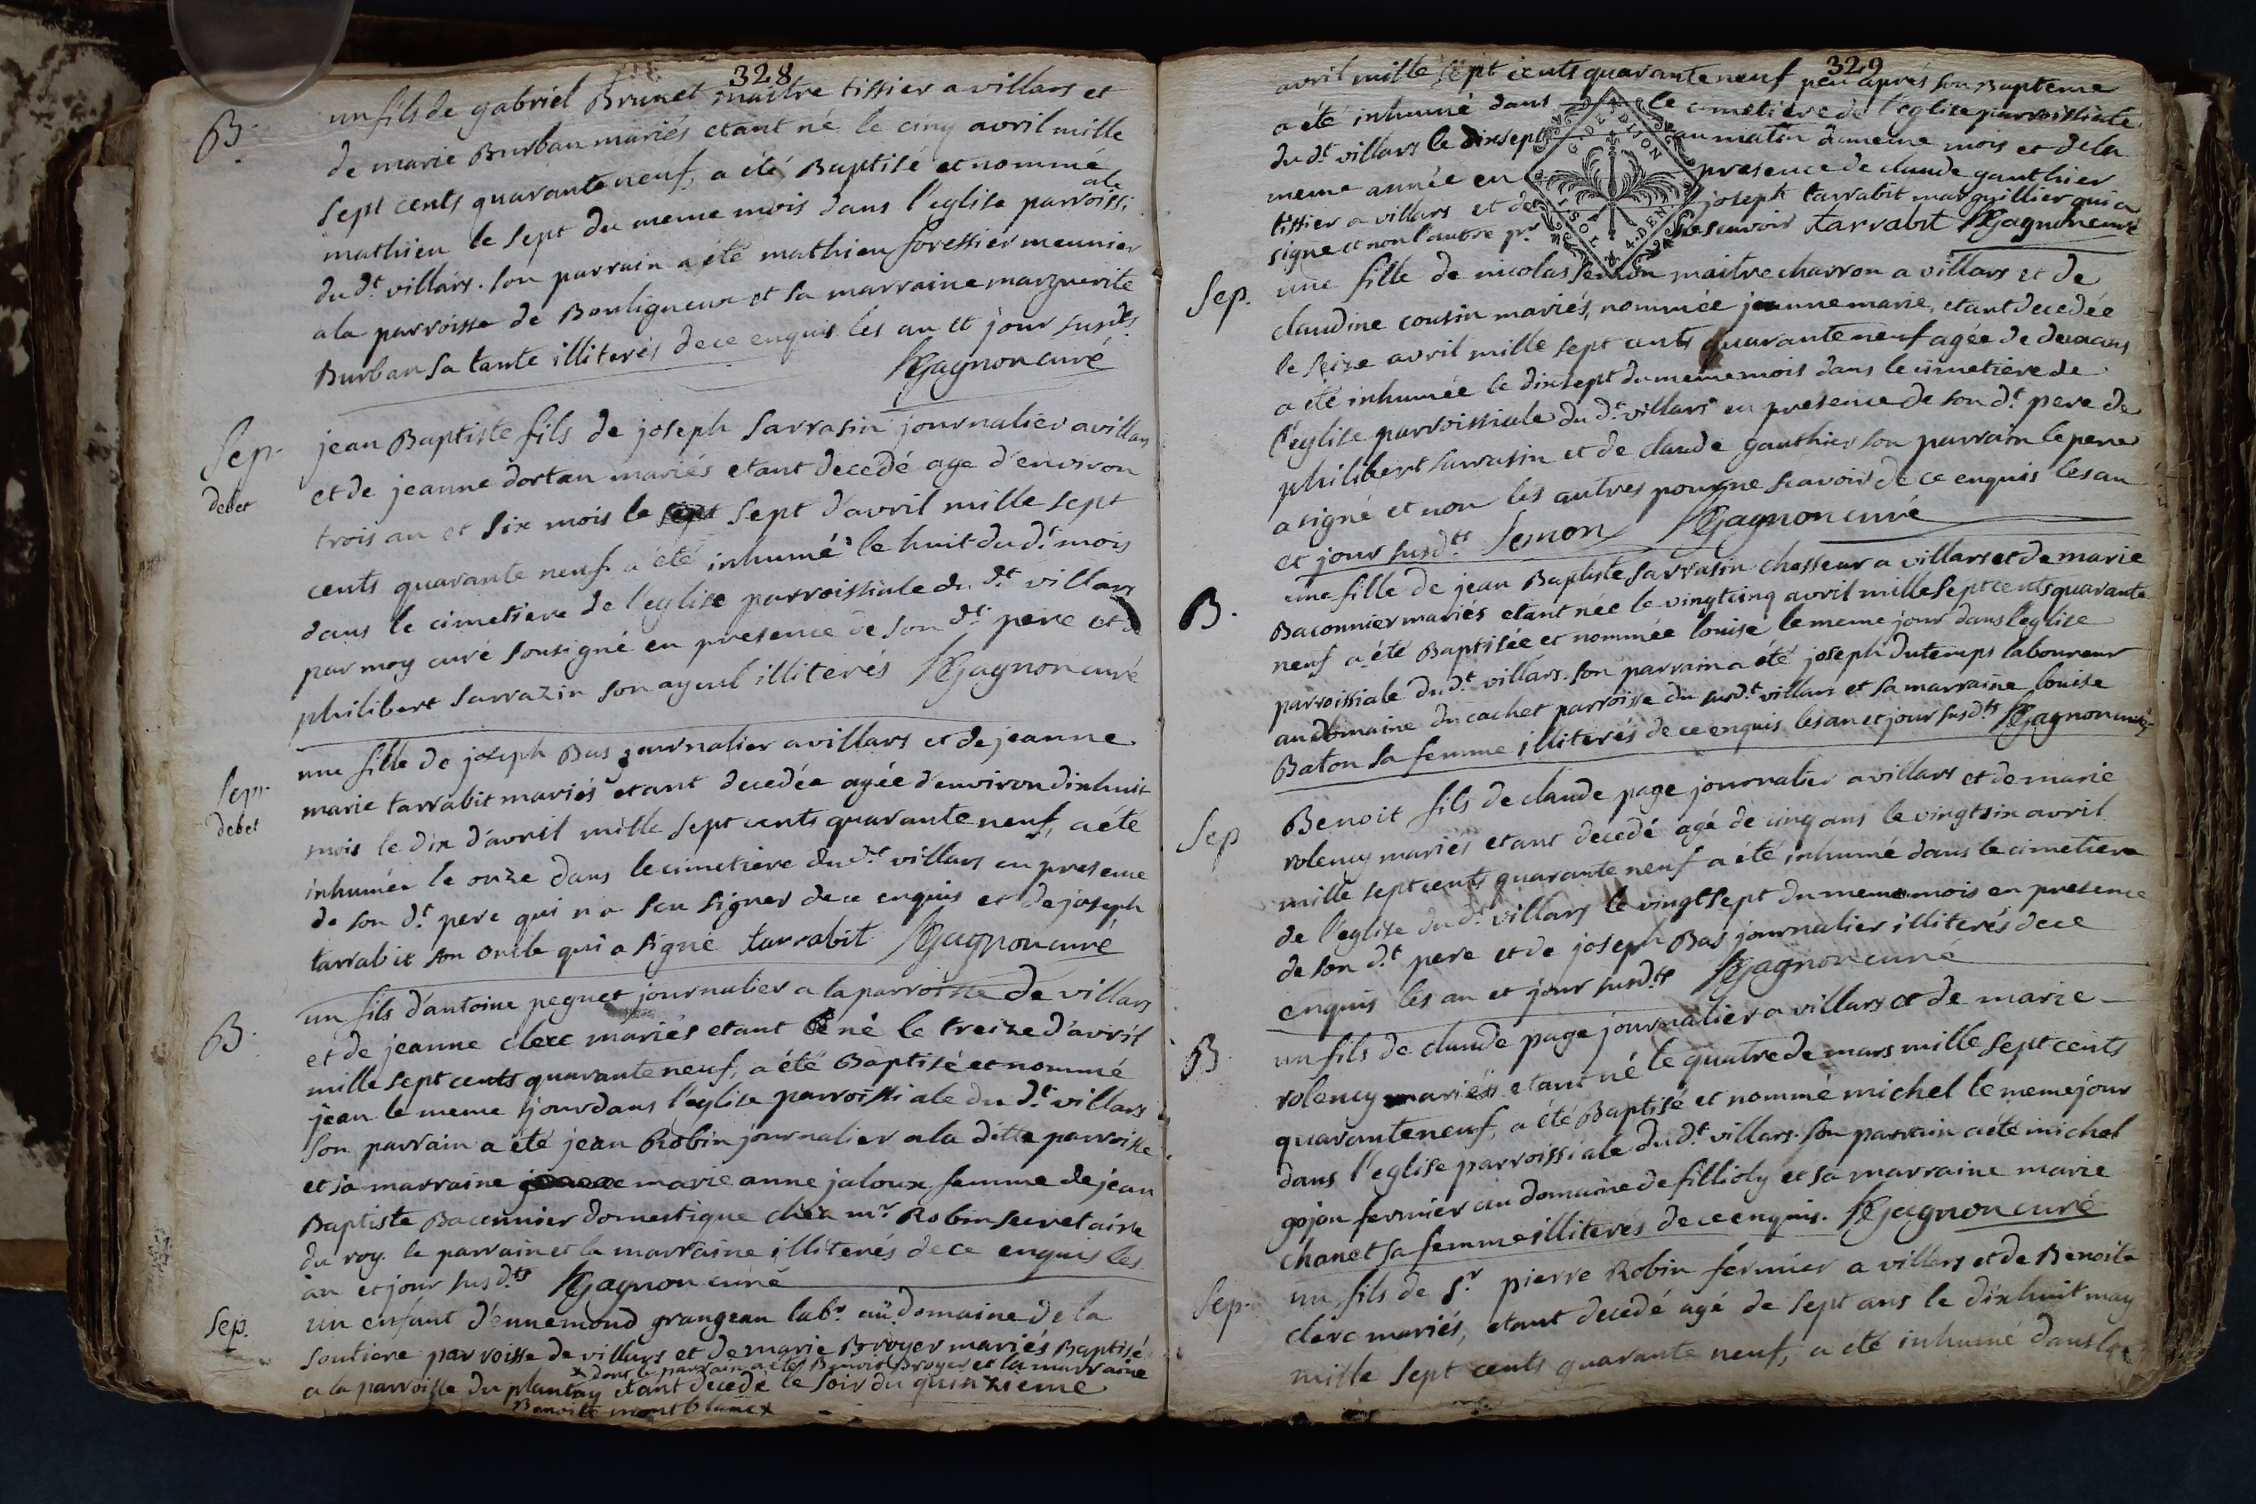 328
B.
un fils de gabriel Brunet maitre tissier a villars et
de marie Burban mariés etant né le cinq avril mille
sept cents quarante neuf, a été Baptisé et nommé
mathieu le sept du meme mois dans l'eglise parroissi
ale
du d.t villars. son parrain a été mathieu forestier meunier
a la parroisse de Bouligneux et sa marraine marguerite
Burban sa tante illiterés de ce enquis les an et jour susd.ts
Gagnon curé
Sep.
debet
jean Baptiste fils de joseph sarrasin journalier a villars
et de jeanne dortan mariés etant decedé age d'environ
trois an et six mois le sept d'avril mille sept
cents quarante neuf a été inhumé le huit du d.t mois
dans le cimetiere de l'eglise parroissiale du d.t villars
par moy curé sousigné en presence de son d.t pere et de
philibert sarrazin son ayeul illiterés Gagnon curé
Sep.
debet
une fille de joseph Bas journalier a villars et de jeanne
marie tarrabit mariés etant decedée agée d'environ dixhuit
mois le dix d'avril mille sept cents quarante neuf, a été
inhumée le onze dans le cimetiere du d.t villars en presence
de son d.t pere qui n'a seu signer de ce enquis et de joseph
tarrabit son oncle qui a signé tarrabit Gagnon curé
B.
un fils d'antoine peguet journalier a la parroisse de villars
et de jeanne clerc mariés etant né le treize d'avril
mille sept cents quarante neuf, a été Baptisé et nommé
jean le meme jour dans l'eglise parroissiale du d.t villars
son parrain a été jean Robin journalier a la ditte parroisse
et sa marraine marie anne jaloux femme de jean
Baptiste Baconnier domestique chéz m.r Robin secretaire
du roy. le parrain et la marraine illiterés de ce enquis les
an et jour susd.ts Gagnon curé
Sep.
un enfant d'ennemond grangean lab.r au domaine de la
soutiere parroisse de villars et de marie Broyer mariés Baptisé
x dont le parrain a été Benoit Broyer et la marraine
a la parroisse du plantay etant decedé le soir du quinzieme
Benoite montblanc x
329
avril mille sept cents quarante neuf peu aprés son Bapteme
a été inhumé dans le cimetiere de l'eglise parroissiale
du d.t villars le dixsept au matin du meme mois et de la
meme année en presence de claude gauthier
tissier a villars et de joseph tarrabit marguillier qui a
signé et non l'autre p.r ne scavoir tarrabit Gagnon curé
G. DE DIJON
1 SOL 4 DEN.
Sep.
une fille de nicolas semon maitre charron a villars et de
claudine cousin mariés, nommée jeanne marie, etant decedée
le seize avril mille sept cents quarante neuf agée de deux ans
a été inhumée le dixsept du meme mois dans le cimetiere de
l'eglise parroissiale du d.t villars en presence de son d.t pere de
philibert sarrasin et de claude gauthier son parrain le pere
a signé et non les autres pour ne scavoir de ce enquis les an
et jour susd.ts Semon Gagnon curé
B.
une fille de jean Baptiste Sarrasin chasseur a villars et de marie
Baconnier mariés etant née le vingt cinq avril mille sept cents quarante
neuf a été Baptisée et nommée louise le meme jour dans l'eglise
parroissiale du d.t villars. son parrain a été joseph dutemps laboureur
au domaine du cachet parroisse du susd.t villars et sa marraine louise
Baton sa femme illiterés de ce enquis les an et jour susd.ts Gagnon curé
Sep
Benoit fils de claude page journalier a villars et de marie
rolency mariés etant decedé agé de cinq ans le vingt six avril
mille sept cents quarante neuf a été inhumé dans le cimetiere
de l'eglise du d.t villars le vingt sept du meme mois en presence
de son d.t pere et de joseph Bas journalier illiterés de ce
enquis les an et jour susd.ts Gagnon curé
B
un fils de claude page journalier a villars et de marie
rolency mariés etant né le quatre de mars mille sept cents
quarante neuf, a été Baptisé et nommé michel le meme jour
dans l'eglise parroissiale du d.t villars. son parrain a été michel
gojon fermier au domaine de fillioly et sa marraine marie
chanet sa femme illiterés de ce enquis. Gagnon curé
Sep.
un fils de S.r pierre Robin fermier a villars et de Benoite
clerc mariés, etant decedé agé de sept ans le dixhuit may
mille sept cents quarante neuf, a été inhumé dans le